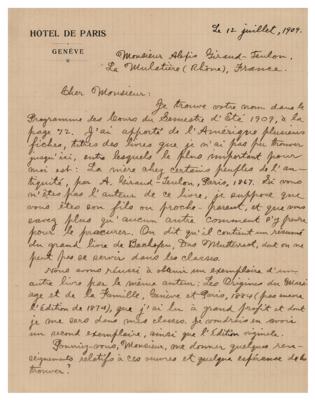 HOTEL DE PARIS
GENÈVE
Le 12 juillet, 1909.
Monsieur Alexis Giraud-Teulon,
La Mulatière (Rhône), France.
Cher Monsieur:
Je trouve votre nom dans le
Programme des Cours du Semestre d'Été 1909, à la
page 72. J'ai apporté de l'Amérique plusieurs
fiches, titres des livres que je n'ai pas pu trouver
jusqu'ici, entre lesquels le plus important pour
moi est: La mère chez certains peuples de l'an-
tiquité, par A. Giraud-Teulon, Paris, 1867. Si vous
n'êtes pas l'auteur de ce livre, je suppose que
vous êtes son fils ou proche parent, et que vous
savez plus qu'aucun autre comment s'y prendre
pour le procurer. On dit qu'il contient un résumé
du grand livre de Bachofen, Das Mutterrecht, dont on ne
peut pas se servir dans les classes.
Nous avons réussi à obtenir un exemplaire d'un
autre livre par le même auteur: Les Origines du Mari-
age et de la Famille, Genève et Paris, 1884 (pas encore
l'Edition de 1874), que j'ai lu à grand profit et dont
je me sers dans mes classes. Je voudrais en avoir
un second exemplaire, ainsi que l'Edition
Pourriez-vous, Monsieur, me donner quelques ren-
seignements relatifs à ces œuvres et quelque espérance de les
trouver?